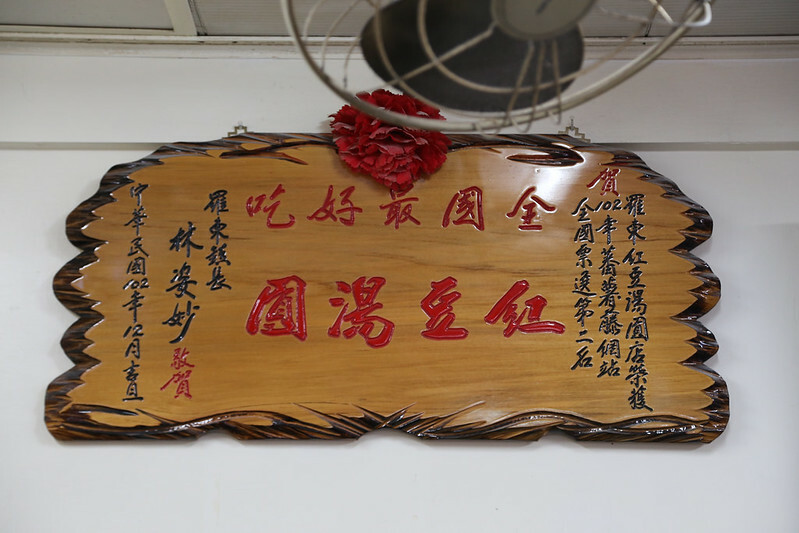 賀
羅東紅豆湯圓店榮獲
102年蕃薯藤網站
全國票選第二名
全國最好吃
紅豆湯圓
羅東鎮長
林姿妙
敬賀
中華民國102年12月吉旦